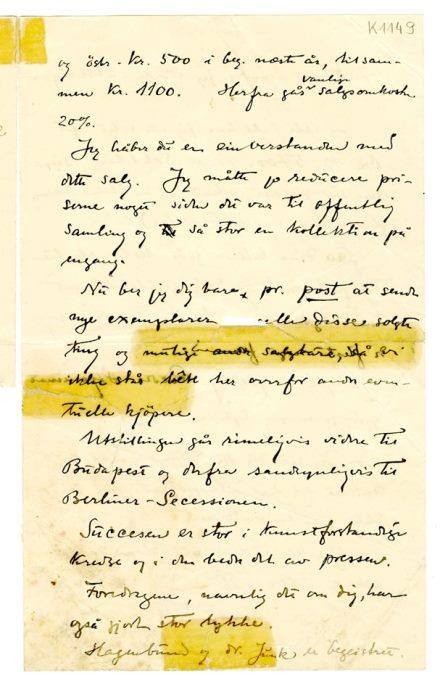 K1149
og östr. Kr. 500 i beg. næste år, tilsam-
men Kr. 1100. Herfra gås vanlige salgsomkostn
20%.
Jeg håber du er einverstanden med
dette salg. Jeg måtte jo reducere pri-
serne noget siden det var til offentlig
samling og så stor en kollektion på
engang.
Nu ber jeg dig bare, pr. post at sende
nye exemplarer alle disse solgte
ting og mulige andre salgbare, så vi
ikke stå blött her overfor andre even-
tuelle kjöpere.
Utstillingen går rimeligvis videre til
Budapest og derfra sandsynligvis til
Berliner-Secessionen.
Succesen er stor i kunstforstandige
kredse og i den bedre del av pressen.
Foredragene, navnlig det om dig, har
også gjort stor lykke.
Hagenbund og dr. Junk er begeistret.